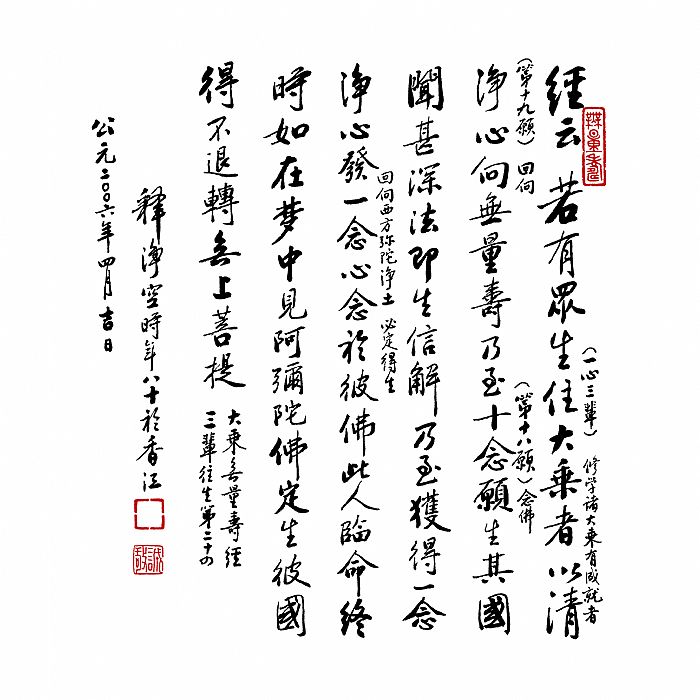 經云 若有眾生住大乘者 以清
(一心三輩) 修學諸大乘有成就者
淨心向無量壽乃至十念願生其國
(第十九願) 回向
(第十八願) 念佛
聞甚深法即生信解乃至獲得一念
淨心發一念心念於彼佛此人臨命終
回向西方弥陀淨土 必定得生
時如在梦中見阿彌陀佛定生彼國
得不退轉無上菩提
大乘無量壽經
三輩往生第二十四
釋淨空時年八十於香江
公元二〇〇六年四月吉日